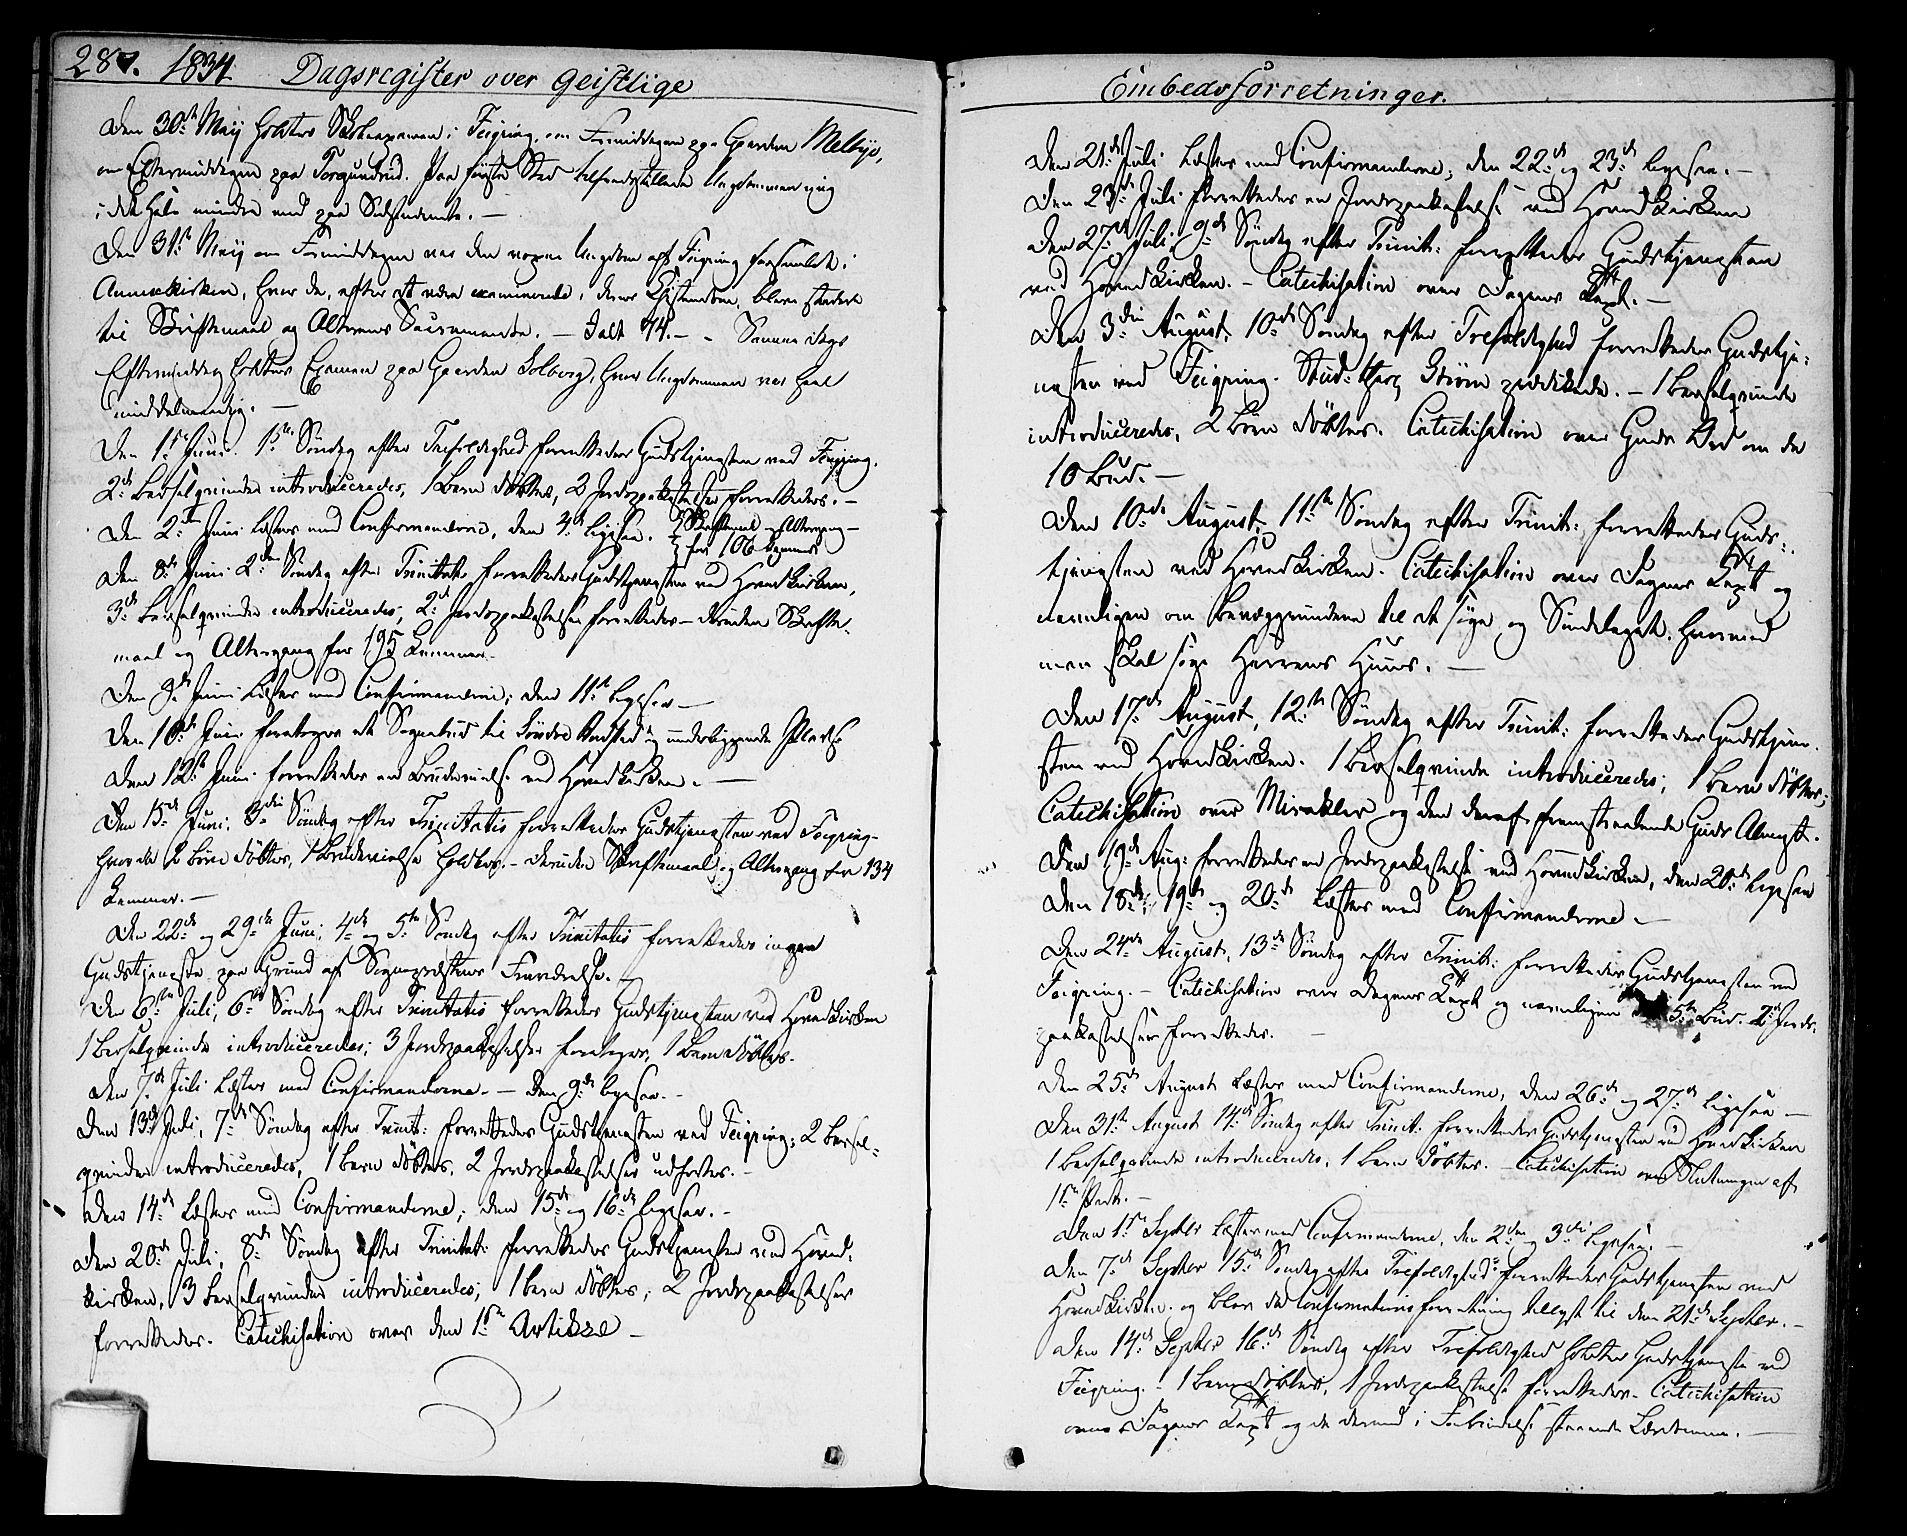 287. 1834. Dagsregister over geistlige
Den 30te May holdtes Skoleexamen i Feigring, om Formiddagen paa Gaarden Melbye,
om Eftermiddagen paa Torgunrud. Paa første Sted tilfredsstillede Ungdommen mig
i det Hele mindre end paa Sidstnævnte. —
Den 31te May om Formiddagen var den voxne Ungdom af Feigring forsamlet i
Annexkirken, hvor de, efter at være examinerede i deres Christendom, bleve stædede
til Skriftemaal og Alterens Sacramente. — I alt 74. — Samme Dags
Eftermiddag holdtes Examen paa Gaarden Solberg, hvor Ungdommen var heel
middelmaadig. —
Den 1ste Juni. 1ste Søndag efter Trefoldighed forrettedes Gudstjenesten ved Feigring.
2de Barselqvinder introduceredes, 1 Barn døbtes, 2 Jordspaakastelser forrettedes. —
Den 2den Juni læstes med Confirmanderne, den 4de ligesaa. Skriftemaal og Altergang
for 106 Kommun:
Den 8de Juni 2den Søndag efter Trinitatis forrettedes Gudstjenesten ved Hovedkirken,
3de Barselqvinder introduceredes, 2de Jordspaakastelser forrettedes — desuden Skrifte-
maal og Altergang for 195 Kommun:
Den 9de Juni læstes med Confirmanderne; den 11te ligesaa —
Den 10de Juni foretoges et Sognebud til Søndre og underliggende Pladse
Den 12te Juni forrettedes en Brudevielse ved Hovedkirken. —
Den 15de Juni, 3die Søndag efter Trinitatis forrettedes Gudstjenesten ved Feigring
hvor da 2 Børn døbtes, 1 Brudevielse holdtes. — desuden Skriftemaal og Altergang for 134
Kommun. —
Den 22de og 29de Juni, 4de og 5te Søndag efter Trinitatis forrettedes ingen
Gudstjeneste paa Grund af Sognepræstens Fraværelse. —
Den 6te Juli, 6te Søndag efter Trinitatis forrettedes Gudstjenesten ved Hovedkirken
1 Barselqvinde introduceredes; 3 Jordspaakastelser foretoges, 1 Barn døbtes.
Den 7de Juli læstes med Confirmanderne. — Den 9de ligesaa. —
Den 13de Juli, 7de Søndag efter Trinit: forrettedes Gudstjenesten ved Feigring; 2 Barsel-
qvinder introduceredes, 1 Barn døbtes, 2 Jordspaakastelser udførtes. —
Den 14de læstes med Confirmanderne; den 15de og 16de ligesaa. —
Den 20de Juli, 8de Søndag efter Trinitat: forrettedes Gudstjenesten ved Hoved-
kirken, 3 Barselqvinder introduceredes; 1 Barn døbtes; 2 Jordspaakastelser
forrettedes. Catechisation over den 1ste Artikel —
Embedsforretninger.
Den 21de Juli læstes med Confirmanderne; den 22de og 23de ligesaa. —
Den 23de Juli forrettedes en Jordspaakastelse ved Hovedkirken
Den 27de Juli 9de Søndag efter Trinit: forrettedes Gudstjenesten
ved Hovedkirken. — Catechisation over Dagens Text. —
Den 3die August, 10de Søndag efter Trefoldighed forrettedes Gudstje-
nesten ved Feigring. Stud: theol. Storm prædikede. — 1 Barselqvinde
introduceredes, 2 Børn døbtes. Catechisation over Guds Ord om de
10 Bud. —
Den 10de August, 11te Søndag efter Trinit: forrettedes Guds-
tjenesten ved Hovedkirken. Catechisation over Dagens Text og
navnligen om Bevæggrundene til at søge og Sindelaget, hvormed
man skal søge Herrens Huus. —
Den 17de August, 12te Søndag efter Trinit: forrettedes Gudstjene-
sten ved Hovedkirken. 1 Barselqvinde introduceredes; 1 Barn døbtes;
Catechisation over Mirakler og den deraf fremstraalende Guds Almagt.
Den 19de Aug: forrettedes en Jordspaakastelse ved Hovedkirken, den 20de ligesaa
Den 18de, 19de og 20de læstes med Confirmanderne —
Den 24de August, 13de Søndag efter Trinit: forrettedes Gudstjenesten ved
Feigring. — Catechisation over Dagens Text og navnligen 5te Bud. 2de Jords-
paakastelser forrettedes. —
Den 25de August læstes med Confirmanderne, den 26de og 27de ligesaa —
Den 31te August 14de Søndag efter Trinit: forrettedes Gudstjenesten ved Hovedkirken
1 Barselqvinde introduceredes, 1 Barn døbtes. — Catechisation over Slutningen af
1ste Part. —
Den 1ste Septbr læstes med Confirmanderne, den 2den og 3die ligesaa. —
Den 7de Septbr 15de Søndag efter Trefoldighed forrettedes Gudstjenesten ved
Hovedkirken og blev da Confirmationsforretning tillyst til den 21de Septbr. —
Den 14de Septbr 16de Søndag efter Trefoldighed holdtes Gudstjeneste ved
Feigring. — 1 Barn døbtes, 1 Jordspaakastelse forrettedes. Catechisation
over Dagens Text og de dermed i Forbindelse staaende Lærdomme. —